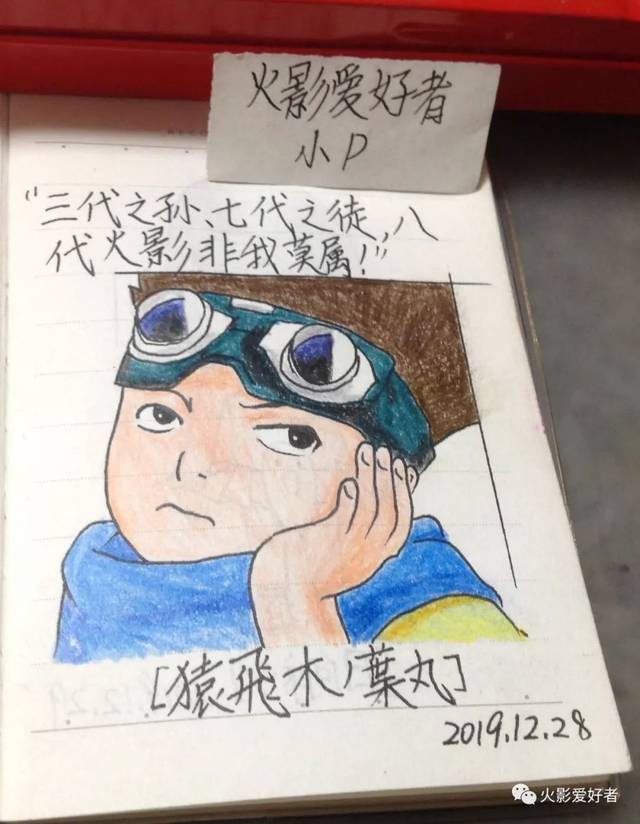 火影爱好者
小P
"三代之孙、七代之徒,八
代火影非我莫属!"
[猿飛木ノ葉丸]
2019.12.28
火影爱好者